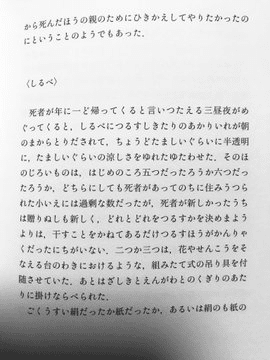 から死んだほうの親のためにひきかえしてやりたかったの
にということのようでもあった。
〈しるべ〉
死者が年に一ど帰ってくると言いつたえる三昼夜がめ
ぐってくると，しるべにつるすしきたりのあかりいれが朝
のまからとりだされて，ちょうどたましいぐらいに半透明
に，たましいぐらいの涼しさをゆれたゆたわせた。そのほ
のじろいものは，はじめのころ五つだったろうか六つだっ
たろうか，どちらにしても死者があってのちに住みうつら
れた小いえには過剰な数だったが，死者が新しかったうち
は贈りぬしも新しく，どれとどれをつるすかを決めまよう
よりは，干すことをかねてあるだけつるすほうがかんりゃ
くだったにちがいない。二つか三つは，花やせんこうをそ
なえる台のわきにおけるような，組みたて式の吊り具を付
随させていた。あとはざしきとえんがわとのくぎりのあた
りに掛けならべられた。
ごくうすい絹だったか紙だったか，あるいは絹のも紙の